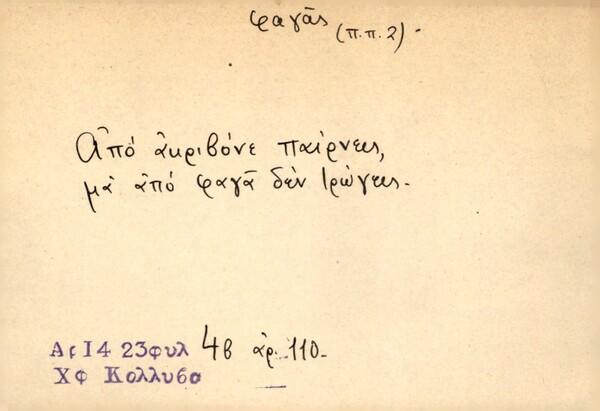 φαγᾶς (π.π. 2).
Ἀπό ἀκριβόνε παίρνεις,
μά ἀπό φαγᾶ δέν τρώγεις.
Αρ14 23φυλ 4β ἀρ. 110.
ΧΦ Κολλυβα